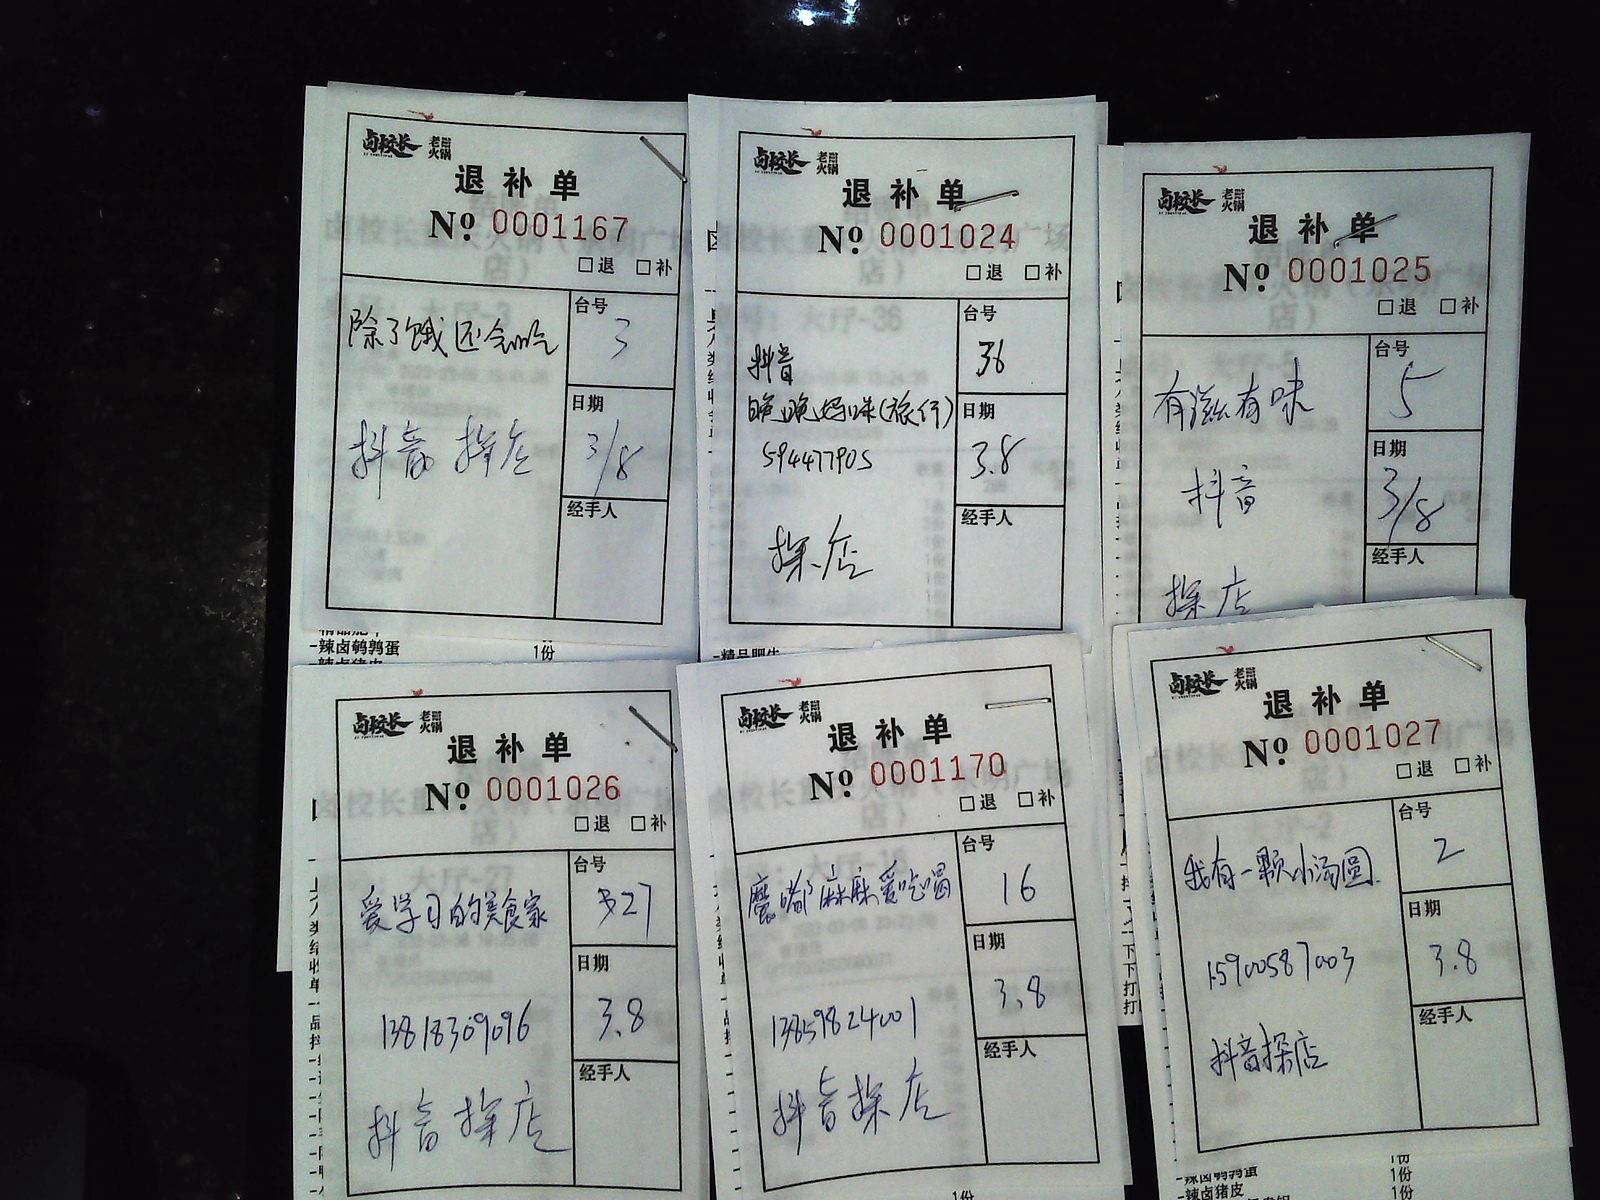 卤校长 老重庆火锅
退补单
Nº 0001167
□退 □补
除了饿还会吃
抖音 探店
台号
3
日期
3/8
经手人
-辣卤鹌鹑蛋 1份
卤校长
退补单
Nº 0001024
□退 □补
抖音
晚晚妈咪(旅行)
594477905
探店
台号
36
日期
3.8
经手人
-精品肥牛
卤校长
退补单
Nº 0001025
□退 □补
有滋有味
抖音
探店
台号
5
日期
3/8
经手人
卤校长
退补单
Nº 0001026
□退 □补
爱学习的美食家
13818309096
抖音探店
台号
27
日期
3.8
经手人
卤校长
退补单
Nº 0001170
□退 □补
魔都麻麻爱吃喝
13859824001
抖音探店
台号
16
日期
3.8
经手人
1份
卤校长
退补单
Nº 0001027
□退 □补
我有一颗小汤圆
15900587003
抖音探店
台号
2
日期
3.8
经手人
-辣卤鹌鹑蛋 1份
-辣卤猪皮 1份